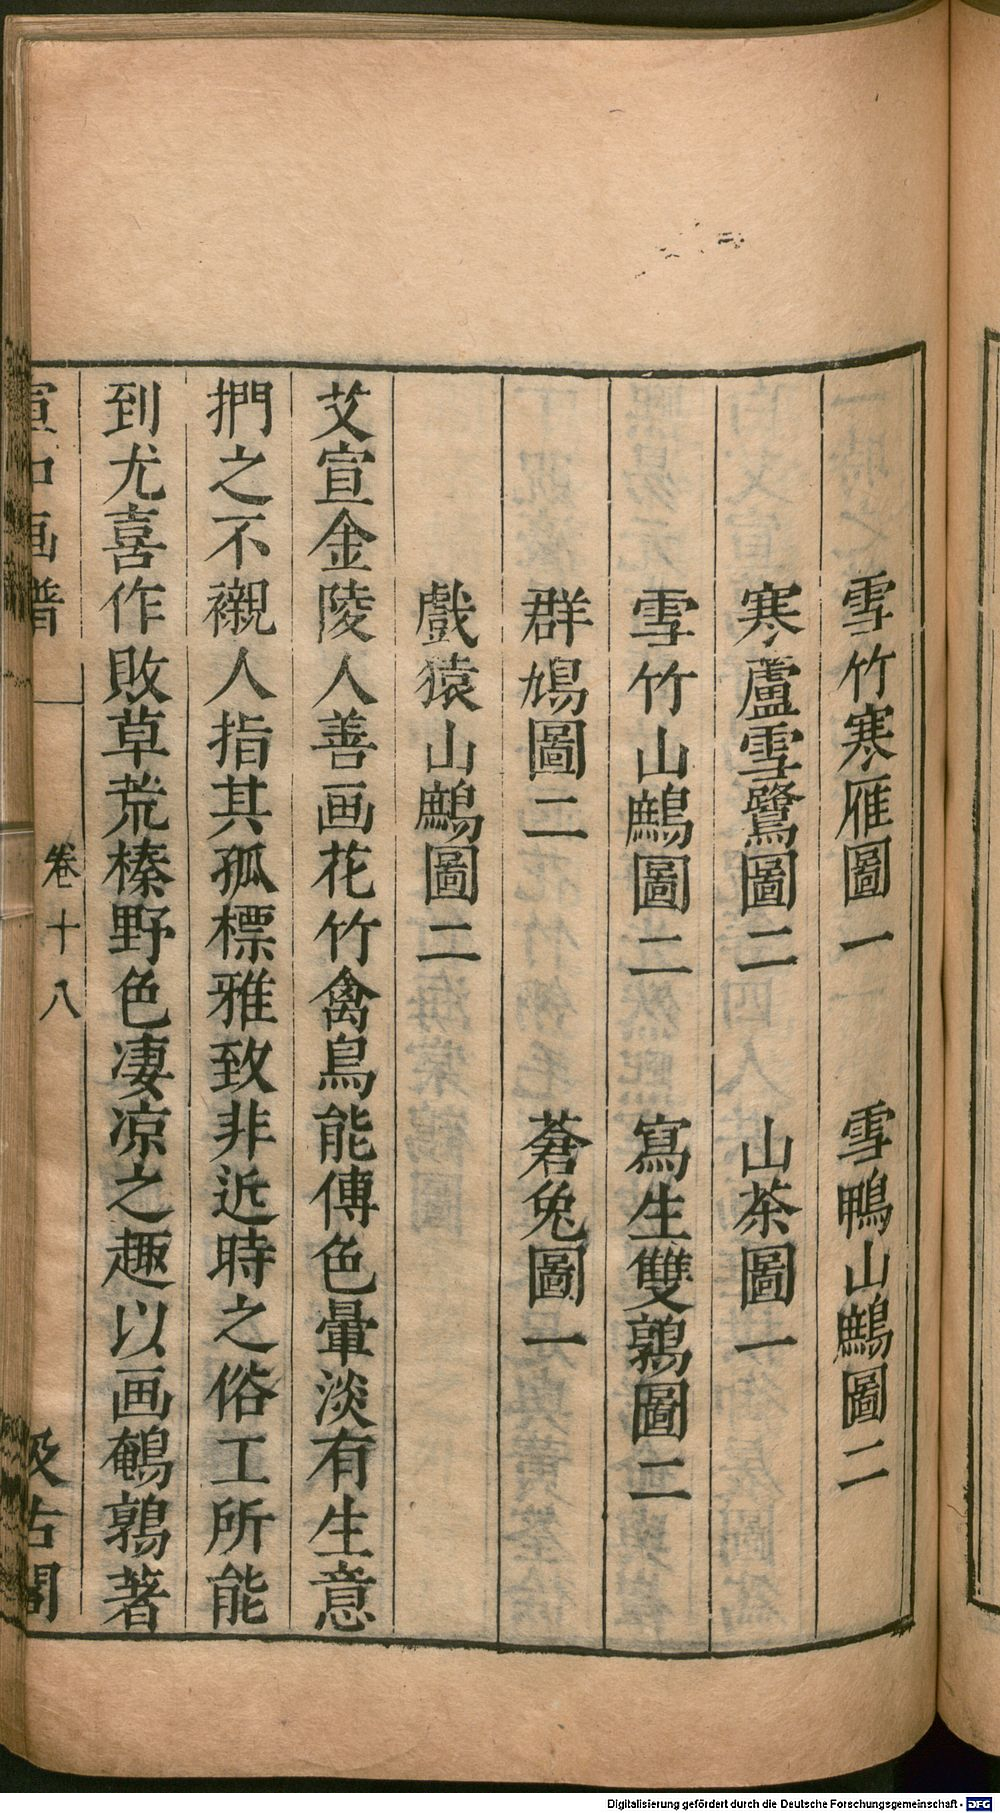 雪竹寒雁圖一　雪鴨山鷓圖二
寒蘆雪鷺圖二　山茶圖一
雪竹山鷓圖二　寫生雙鶉圖二
群鳩圖二　蒼兔圖一
戲猿山鷓圖二
艾宣金陵人善画花竹禽鳥能傅色暈淡有生意
捫之不襯人指其孤標雅致非近時之俗工所能
到尤喜作敗草荒榛野色凄凉之趣以画鵪鶉著
宣和画譜　卷十八　汲古閣
Digitalisierung gefördert durch die Deutsche Forschungsgemeinschaft - DFG